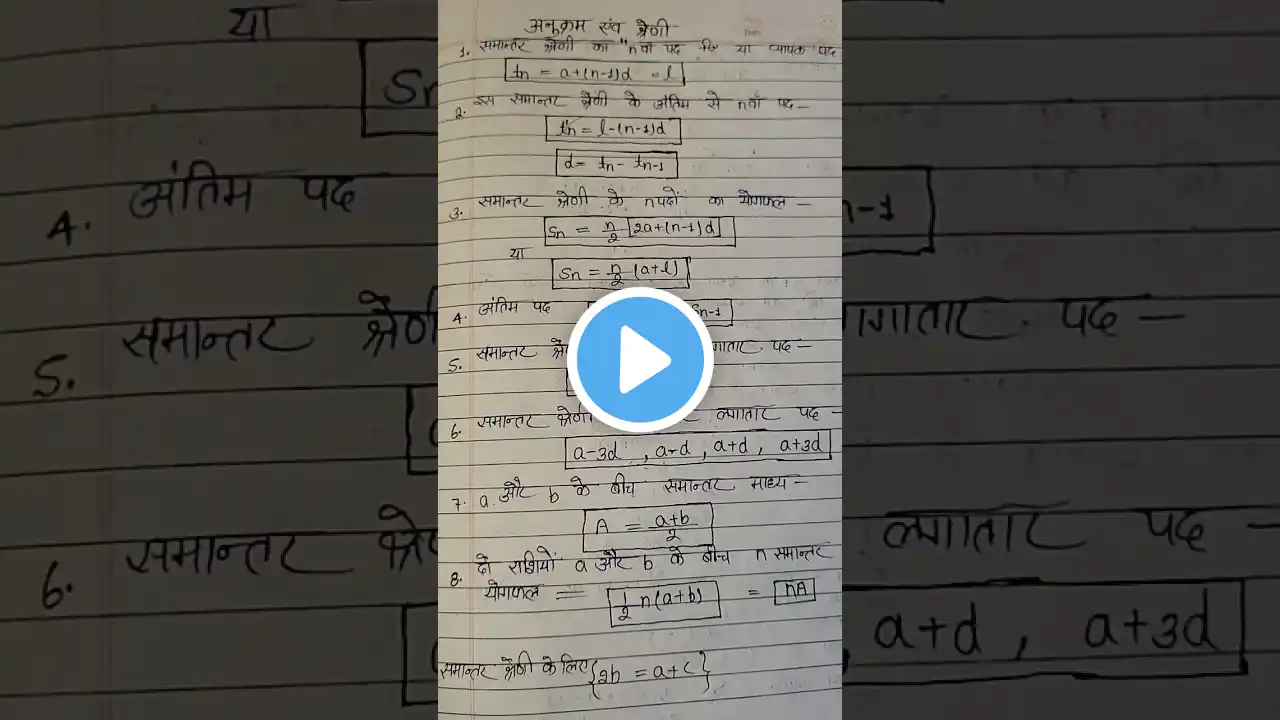 अनुक्रम एवं श्रेणी
1. समान्तर श्रेणी का "n वाँ पद या व्यापक पद
tn = a+(n-1)d = l
2. इस समान्तर श्रेणी के अंतिम से nवाँ पद -
t'n = l-(n-1)d
d = tn - tn-1
3. समान्तर श्रेणी के n पदों का योगफल -
Sn = n/2 [2a+(n-1)d]
या
Sn = n/2 (a+l)
4. अंतिम पद Sn-1
5. समान्तर पद -
6. समान्तर श्रेणी लगातार पद -
a-3d, a-d, a+d, a+3d
7. a और b के बीच समान्तर माध्य -
A = a+b/2
8. दो राशियों a और b के बीच n समान्तर
योगफल = 1/2 n(a+b) = nA
समान्तर श्रेणी के लिए {2b = a+c}